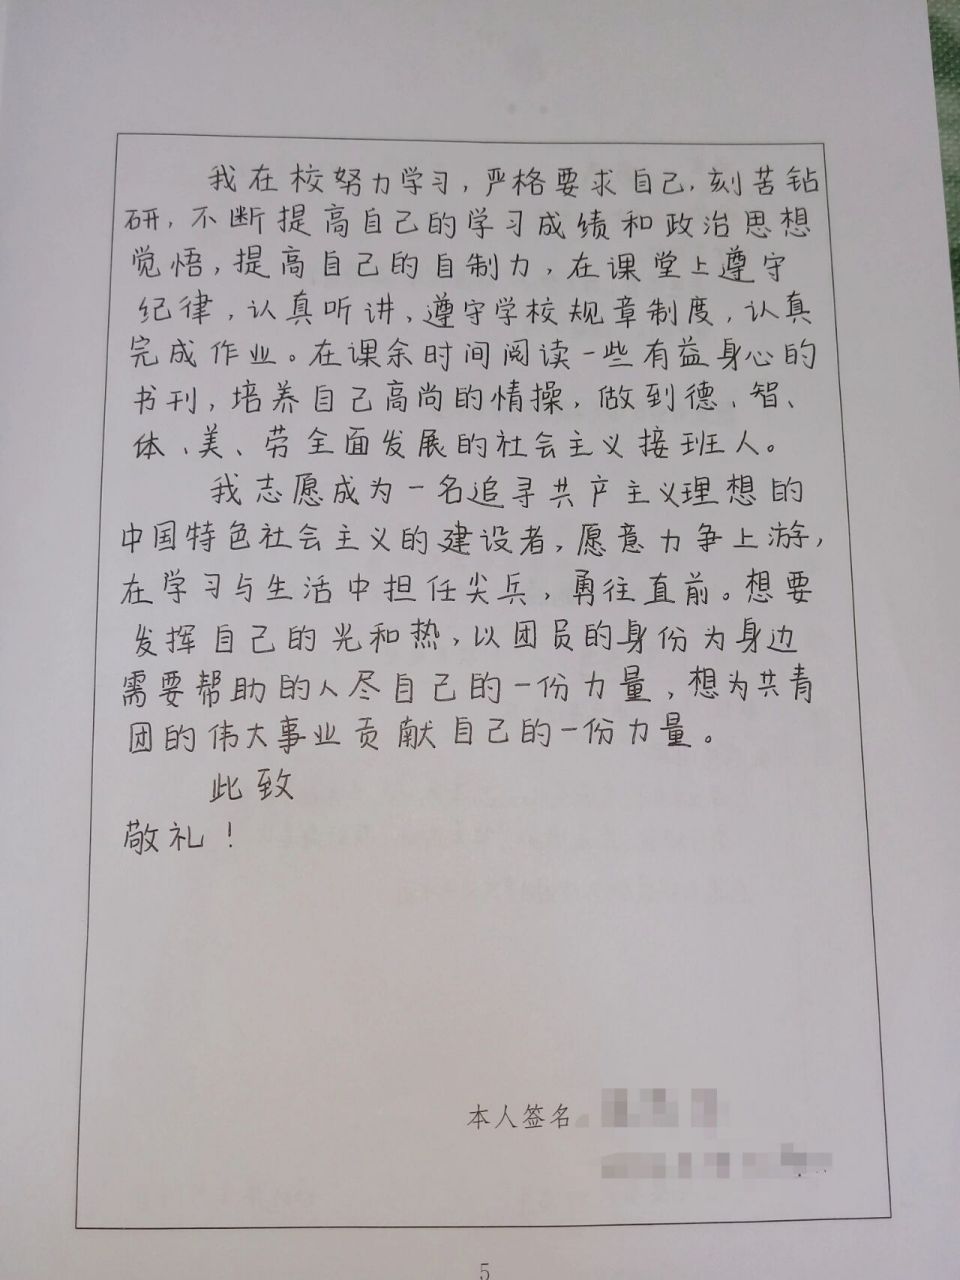 我在校努力学习，严格要求自己，刻苦钻
研，不断提高自己的学习成绩和政治思想
觉悟，提高自己的自制力，在课堂上遵守
纪律，认真听讲，遵守学校规章制度，认真
完成作业。在课余时间阅读一些有益身心的
书刊，培养自己高尚的情操，做到德、智、
体、美、劳全面发展的社会主义接班人。
我志愿成为一名追寻共产主义理想的
中国特色社会主义的建设者，愿意力争上游，
在学习与生活中担任尖兵，勇往直前。想要
发挥自己的光和热，以团员的身份为身边
需要帮助的人尽自己的一份力量，想为共青
团的伟大事业贡献自己的一份力量。
此致
敬礼！
本人签名
5